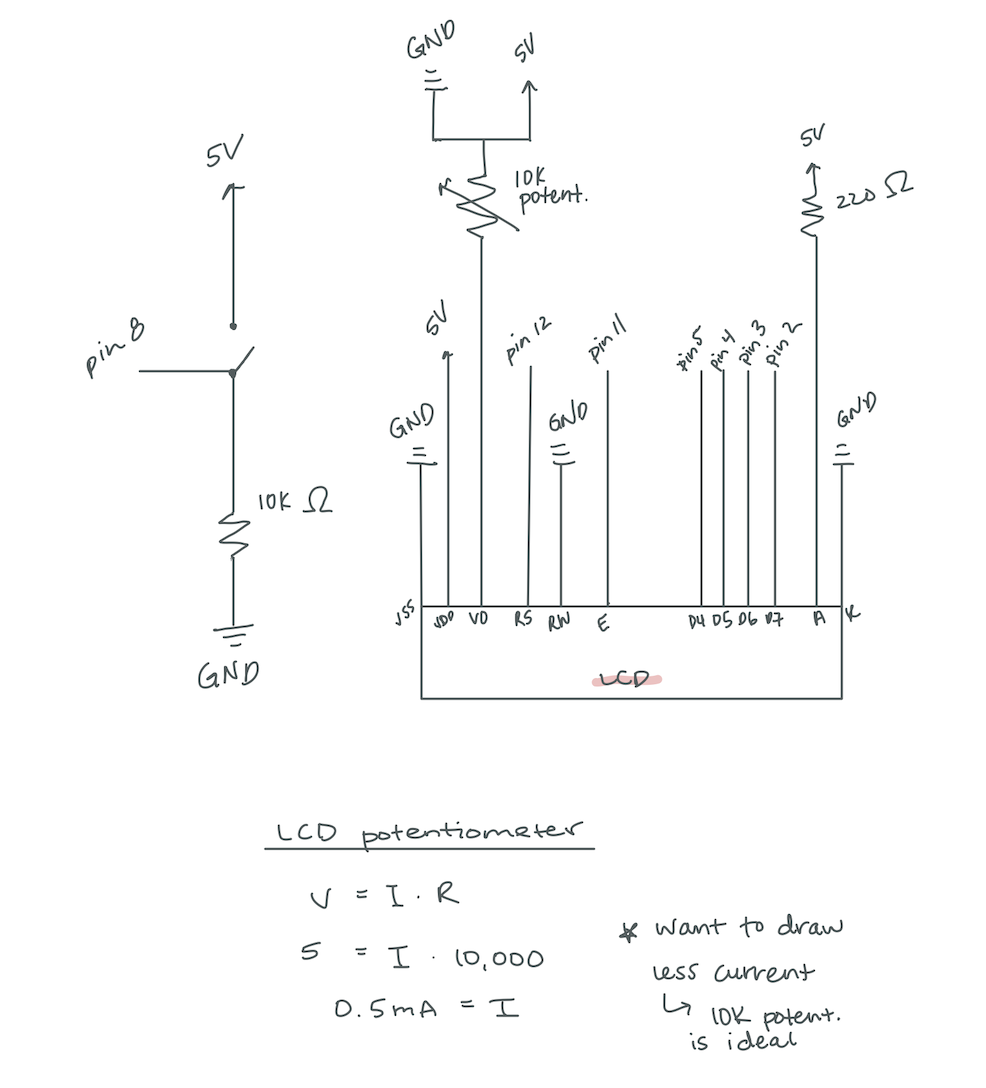 GND
5V
5V
10K
potent.
5V
220 Ω
5V
pin 8
pin 12
pin 11
pin 5
pin 4
pin 3
pin 2
GND
GND
GND
10K Ω
GND
VSS
VDD
VO
RS
RW
E
D4
D5
D6
D7
A
K
LCD
LCD potentiometer
V = I · R
5 = I · 10,000
0.5mA = I
* want to draw
less current
↳ 10K potent.
is ideal